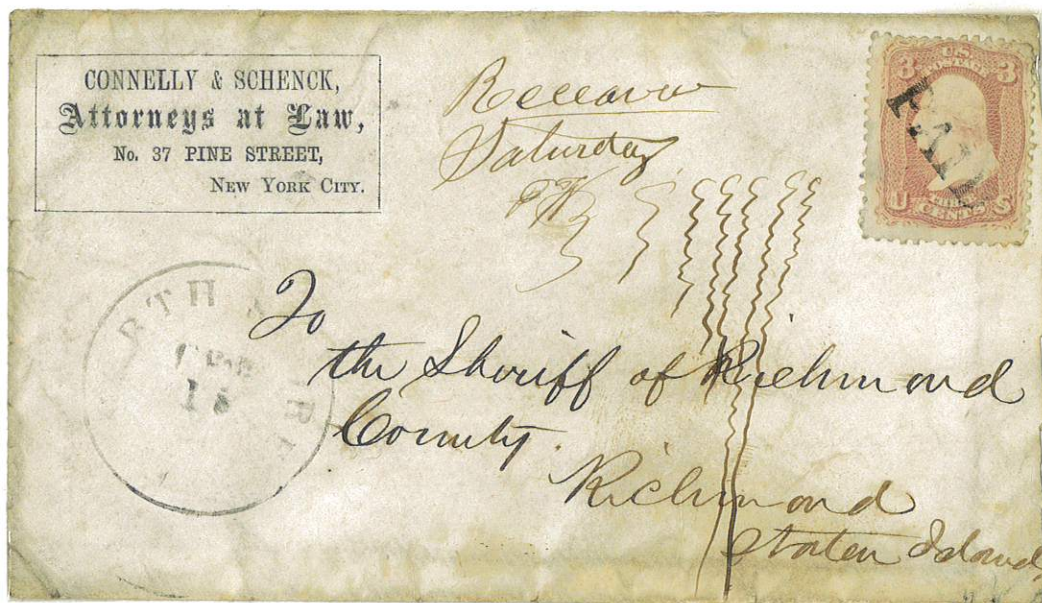 CONNELLY & SCHENCK,
Attorneys at Law,
No. 37 PINE STREET,
NEW YORK CITY.
Saturday
3 U.S. 3
POSTAGE
U CENTS S
RTH
18
To
the Sheriff of Richmond
County.
Richmond
Staten Island